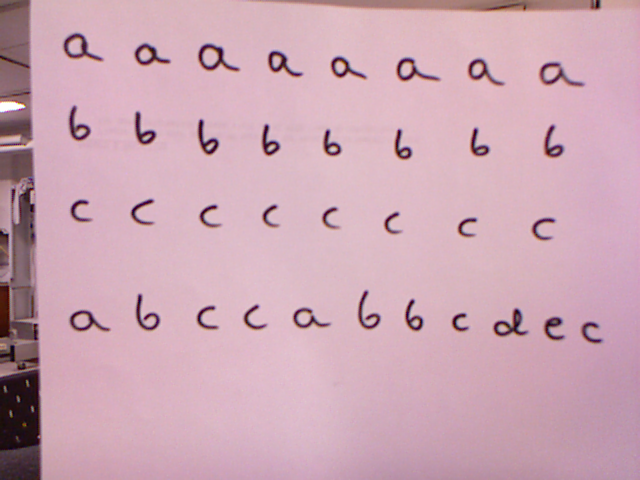 a a a a a a a a
b b b b b b b b
c c c c c c c c
a b c c a b b c d e c